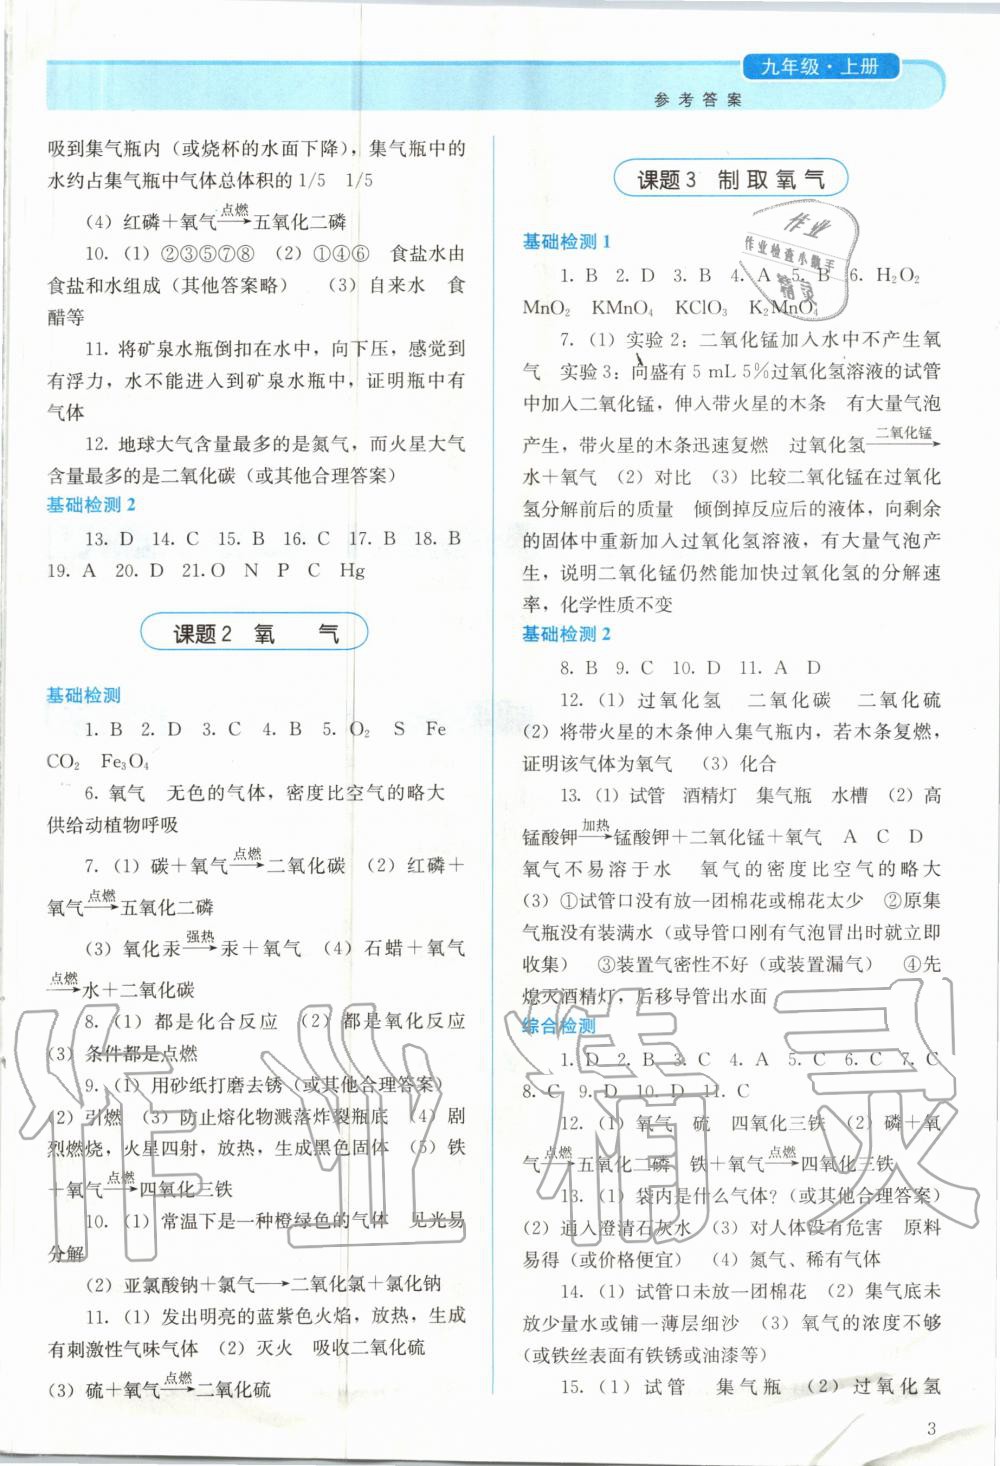 九年级·上册
参考答案
吸到集气瓶内（或烧杯的水面下降），集气瓶中的
水约占集气瓶中气体总体积的 1/5　1/5
（4）红磷＋氧气 点燃→ 五氧化二磷
10.（1）②③⑤⑦⑧　（2）①④⑥　食盐水由
食盐和水组成（其他答案略）　（3）自来水　食
醋等
11. 将矿泉水瓶倒扣在水中，向下压，感觉到
有浮力，水不能进入到矿泉水瓶中，证明瓶中有
气体
12. 地球大气含量最多的是氮气，而火星大气
含量最多的是二氧化碳（或其他合理答案）
基础检测 2
13. D　14. C　15. B　16. C　17. B　18. B
19. A　20. D　21. O　N　P　C　Hg
课题 2　氧　气
基础检测
1. B　2. D　3. C　4. B　5. O₂　S　Fe
CO₂　Fe₃O₄
6. 氧气　无色的气体，密度比空气的略大
供给动植物呼吸
7.（1）碳＋氧气 点燃→ 二氧化碳　（2）红磷＋
氧气 点燃→ 五氧化二磷
（3）氧化汞 强热→ 汞＋氧气　（4）石蜡＋氧气
点燃→ 水＋二氧化碳
8.（1）都是化合反应　（2）都是氧化反应
（3）条件都是点燃
9.（1）用砂纸打磨去锈（或其他合理答案）
（2）引燃　（3）防止熔化物溅落炸裂瓶底　（4）剧
烈燃烧，火星四射，放热，生成黑色固体　（5）铁
＋氧气 点燃→ 四氧化三铁
10.（1）常温下是一种橙绿色的气体　见光易
分解
（2）亚氯酸钠＋氯气 → 二氧化氯＋氯化钠
11.（1）发出明亮的蓝紫色火焰，放热，生成
有刺激性气味气体　（2）灭火　吸收二氧化硫
（3）硫＋氧气 点燃→ 二氧化硫
课题 3　制取氧气
基础检测 1
1. B　2. D　3. B　4. A　5. B　6. H₂O₂
MnO₂　KMnO₄　KClO₃　K₂MnO₄
7.（1）实验 2：二氧化锰加入水中不产生氧
气　实验 3：向盛有 5 mL 5%过氧化氢溶液的试管
中加入二氧化锰，伸入带火星的木条　有大量气泡
产生，带火星的木条迅速复燃　过氧化氢 二氧化锰→
水＋氧气　（2）对比　（3）比较二氧化锰在过氧化
氢分解前后的质量　倾倒掉反应后的液体，向剩余
的固体中重新加入过氧化氢溶液，有大量气泡产
生，说明二氧化锰仍然能加快过氧化氢的分解速
率，化学性质不变
基础检测 2
8. B　9. C　10. D　11. A　D
12.（1）过氧化氢　二氧化碳　二氧化硫
（2）将带火星的木条伸入集气瓶内，若木条复燃，
证明该气体为氧气　（3）化合
13.（1）试管　酒精灯　集气瓶　水槽　（2）高
锰酸钾 加热→ 锰酸钾＋二氧化锰＋氧气　A　C　D
氧气不易溶于水　氧气的密度比空气的略大
（3）①试管口没有放一团棉花或棉花太少　②原集
气瓶没有装满水（或导管口刚有气泡冒出时就立即
收集）　③装置气密性不好（或装置漏气）　④先
熄灭酒精灯，后移导管出水面
综合检测
1. D　2. B　3. C　4. A　5. C　6. C　7. C
8. C　9. D　10. D　11. C
12.（1）氧气　硫　四氧化三铁　（2）磷＋氧
气 点燃→ 五氧化二磷　铁＋氧气 点燃→ 四氧化三铁
13.（1）袋内是什么气体？（或其他合理答案）
（2）通入澄清石灰水　（3）对人体没有危害　原料
易得（或价格便宜）　（4）氮气、稀有气体
14.（1）试管口未放一团棉花　（2）集气底未
放少量水或铺一薄层细沙　（3）氧气的浓度不够
（或铁丝表面有铁锈或油漆等）
15.（1）试管　集气瓶　（2）过氧化氢
3
作业
作业检查小帮手
精灵
作业精灵